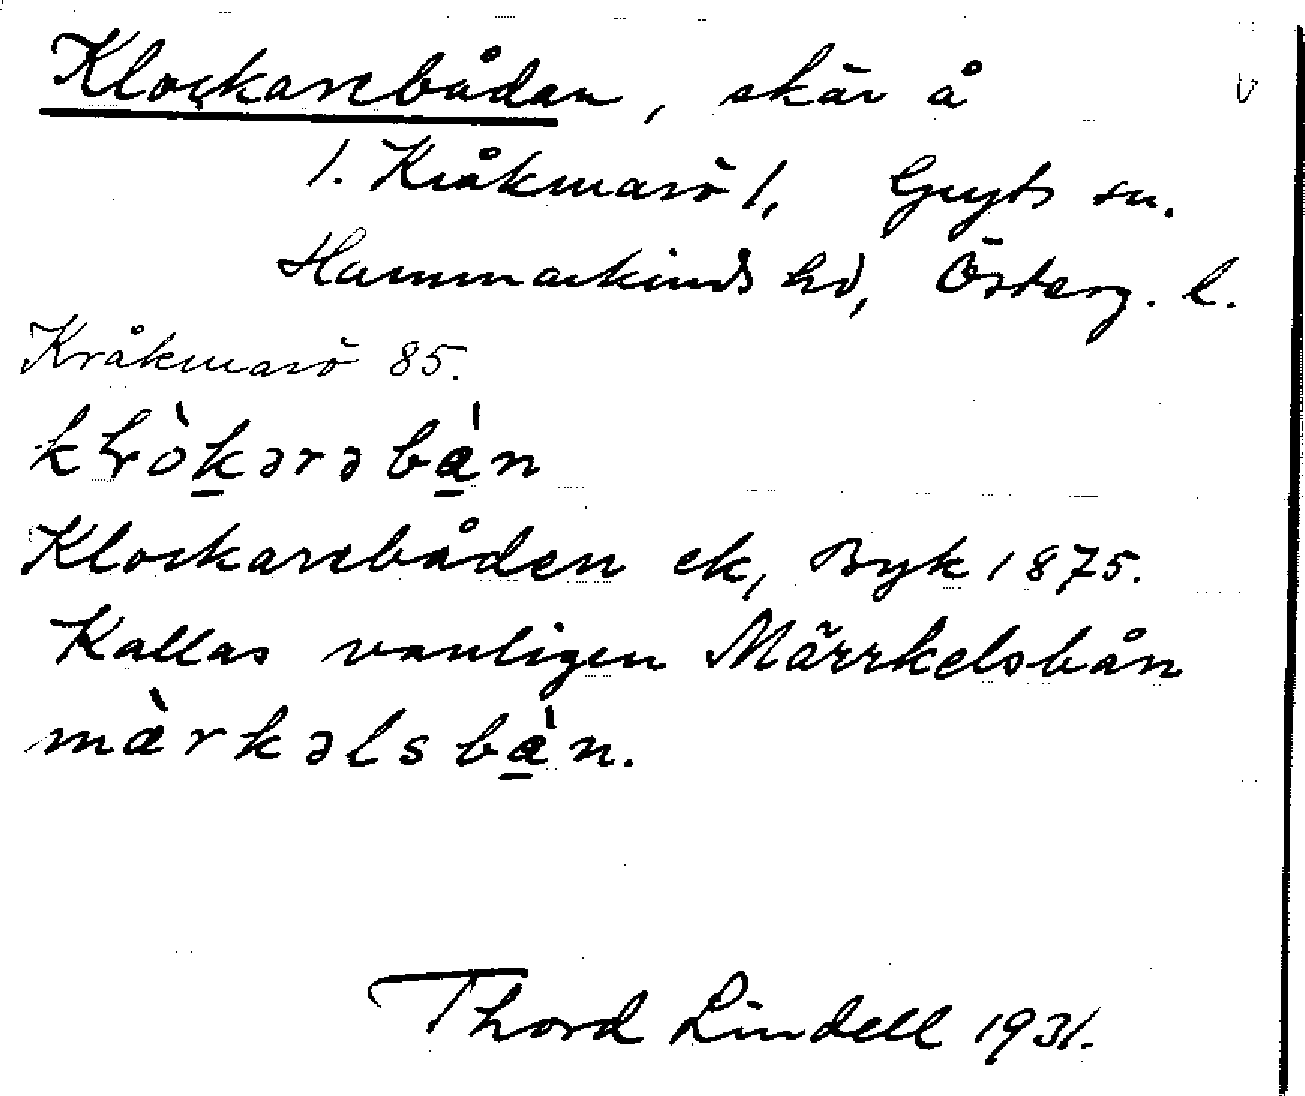 Klockarebådan, skär å
1. Kråkmarö 1, Gryts sn.
Hammarkinds hd, Österg. l.
Kråkmarö 85.
klòkərəbàn
Klockarebåden ek, Byk 1875.
Kallas vanligen Märrkelsbån
màrkəlsbàn.
Thord Lindell 1931.